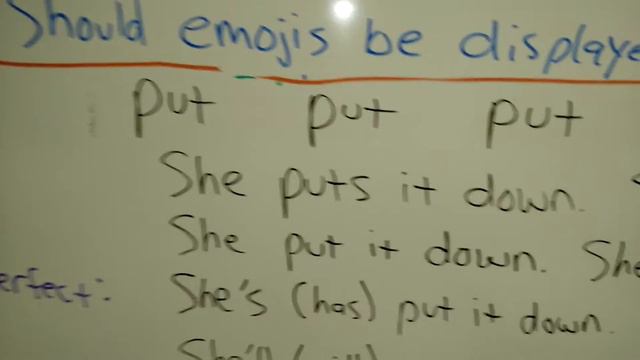 Should emojis be displaye
put put put
She puts it down.
She put it down. She
erfect: She's (has) put it down.